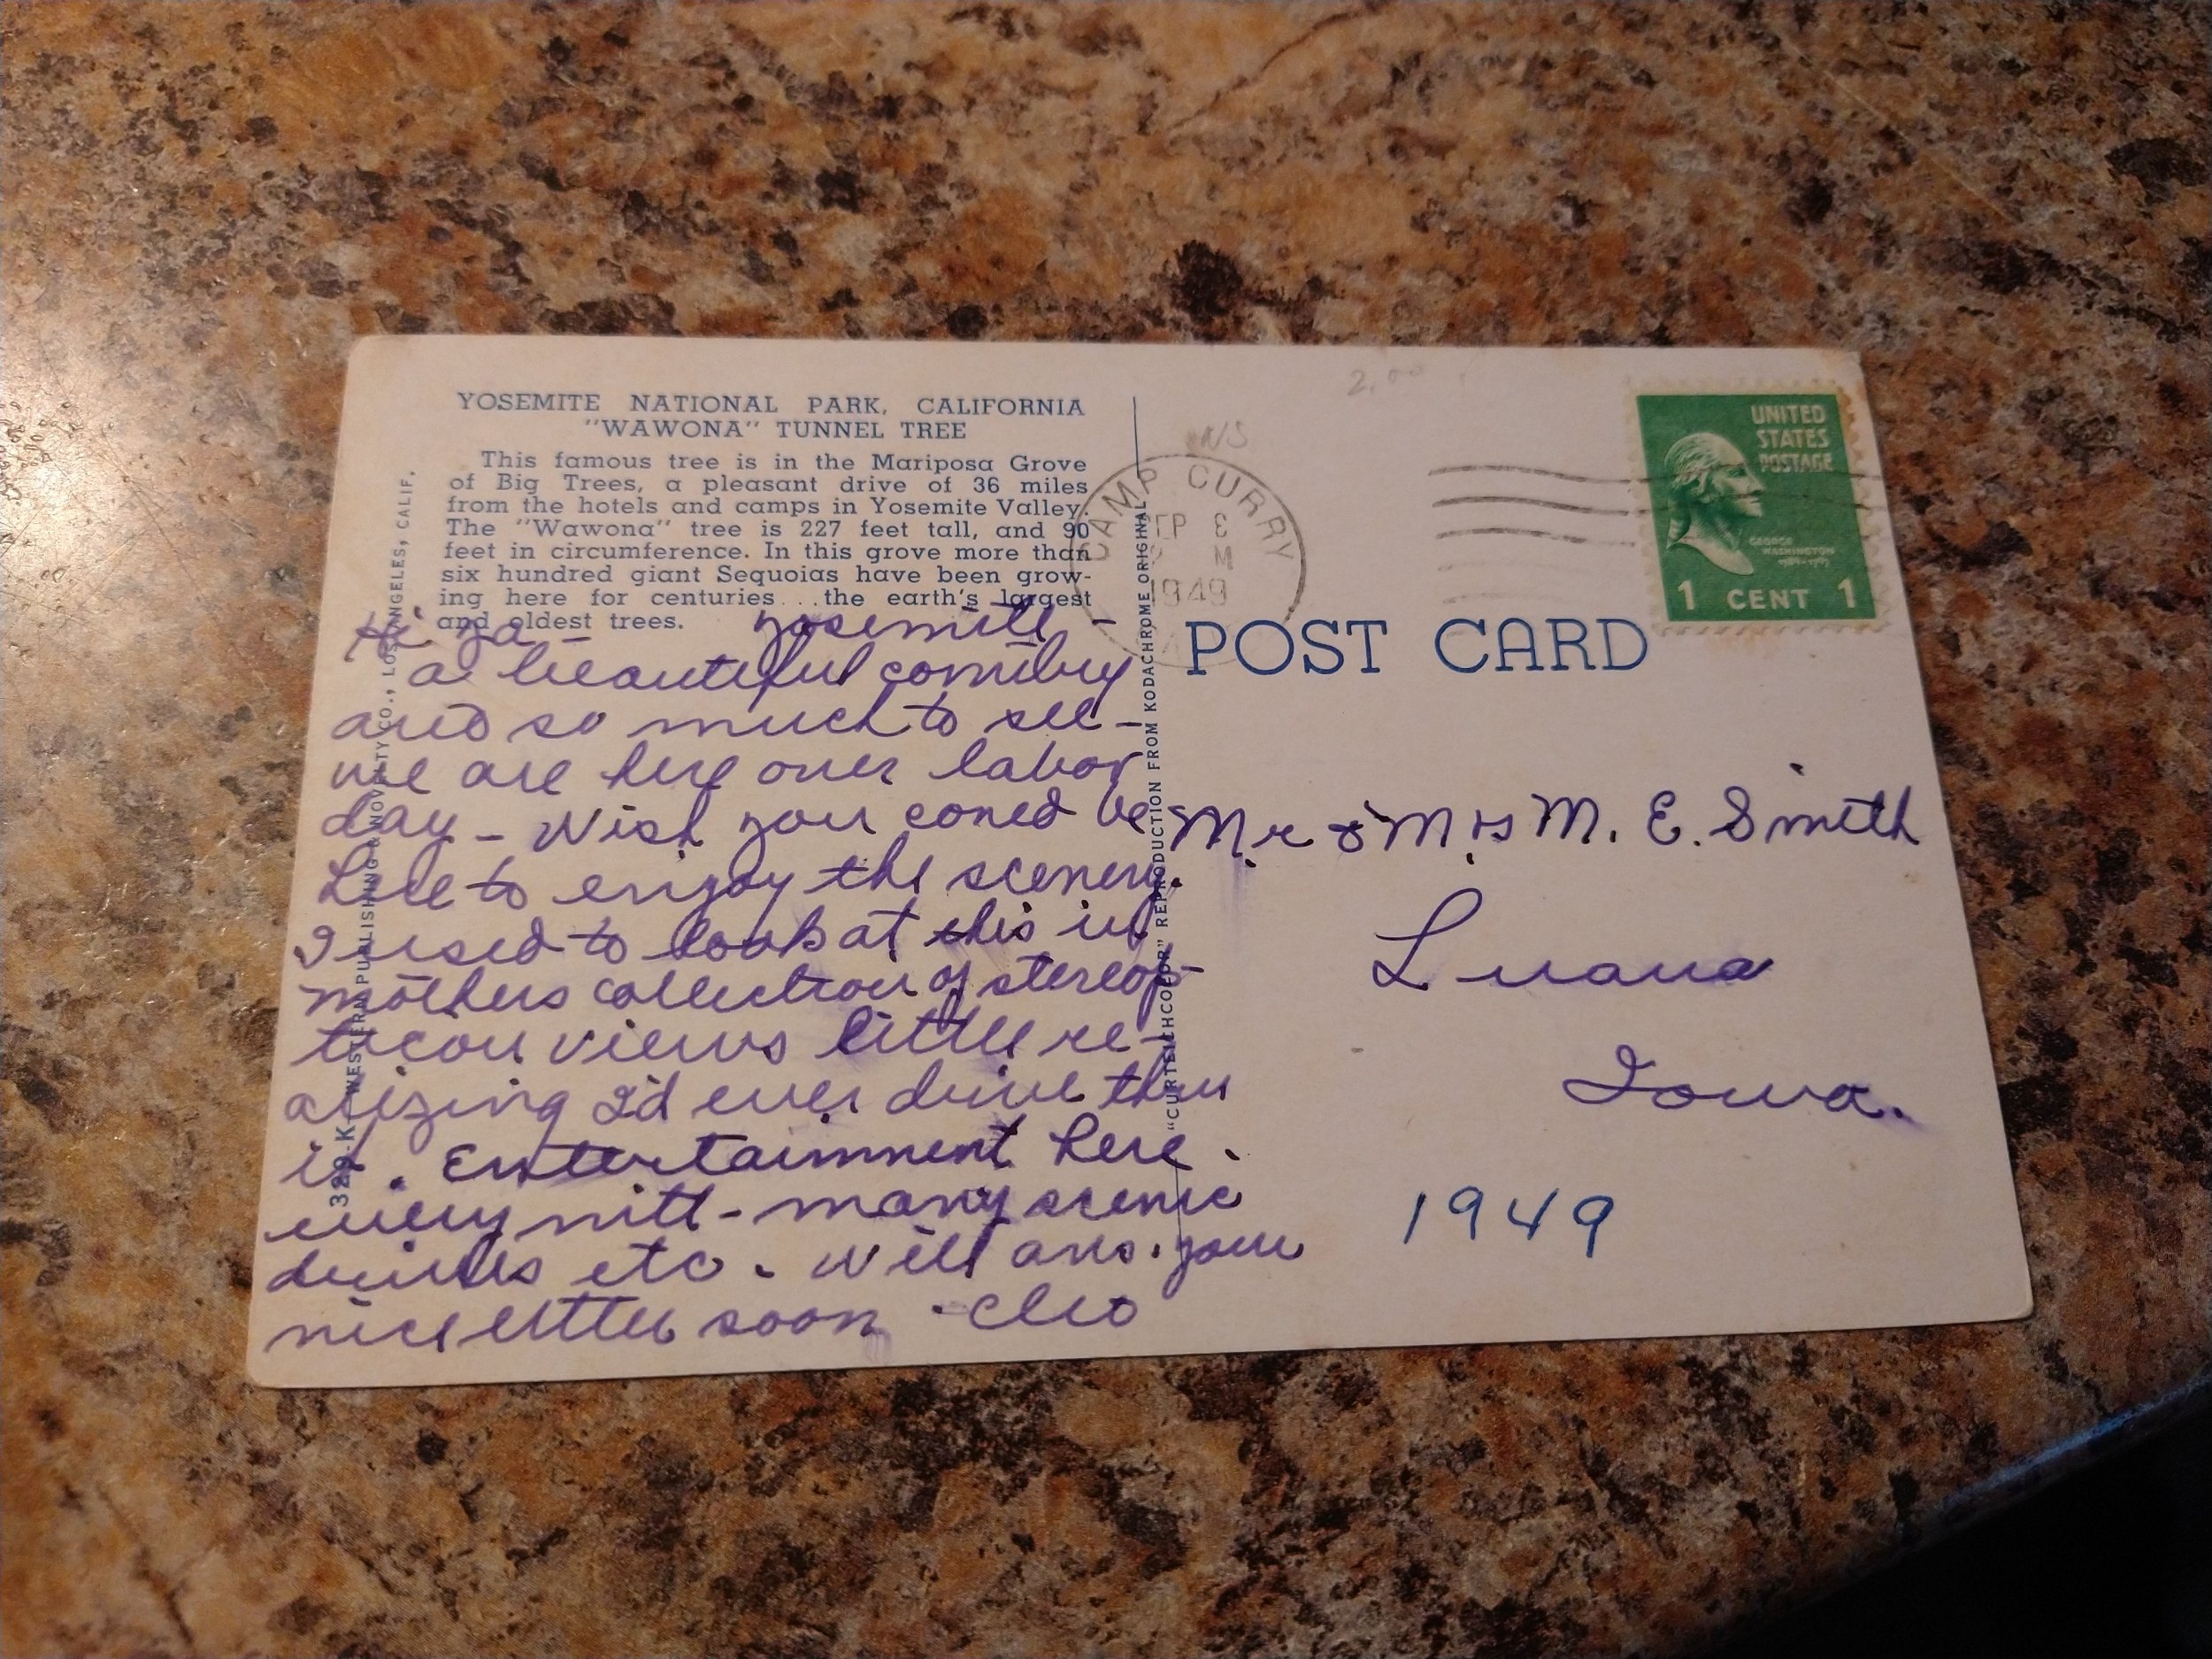 YOSEMITE NATIONAL PARK, CALIFORNIA
"WAWONA" TUNNEL TREE
This famous tree is in the Mariposa Grove
of Big Trees, a pleasant drive of 36 miles
from the hotels and camps in Yosemite Valley.
The "Wawona" tree is 227 feet tall, and 90
feet in circumference. In this grove more than
six hundred giant Sequoias have been grow-
ing here for centuries...the earth's largest
and oldest trees.
Hi Ya - Yosemite -
a beautiful country
and so much to see -
we are here over labor
day - Wish you coued be
here to enjoy the scenery.
I used to look at this in
mothers collection of stereop-
ticon views little re-
alizing I'd ever drive thru
it. Entertainment here.
every nite - many scenic
drives etc. Will ans. your
nice letter soon - Cleo
329-K-WESTERN PUBLISHING & NOVELTY CO., LOS ANGELES, CALIF.
"CURTEICHCOLOR" REPRODUCTION FROM KODACHROME ORIGINAL
2.00
NS
CAMP CURRY
SEP
M
1949
UNITED
STATES
POSTAGE
GEORGE
WASHINGTON
1 CENT 1
POST CARD
Mr & Mrs M. E. Smith
Luana
Iowa.
1949